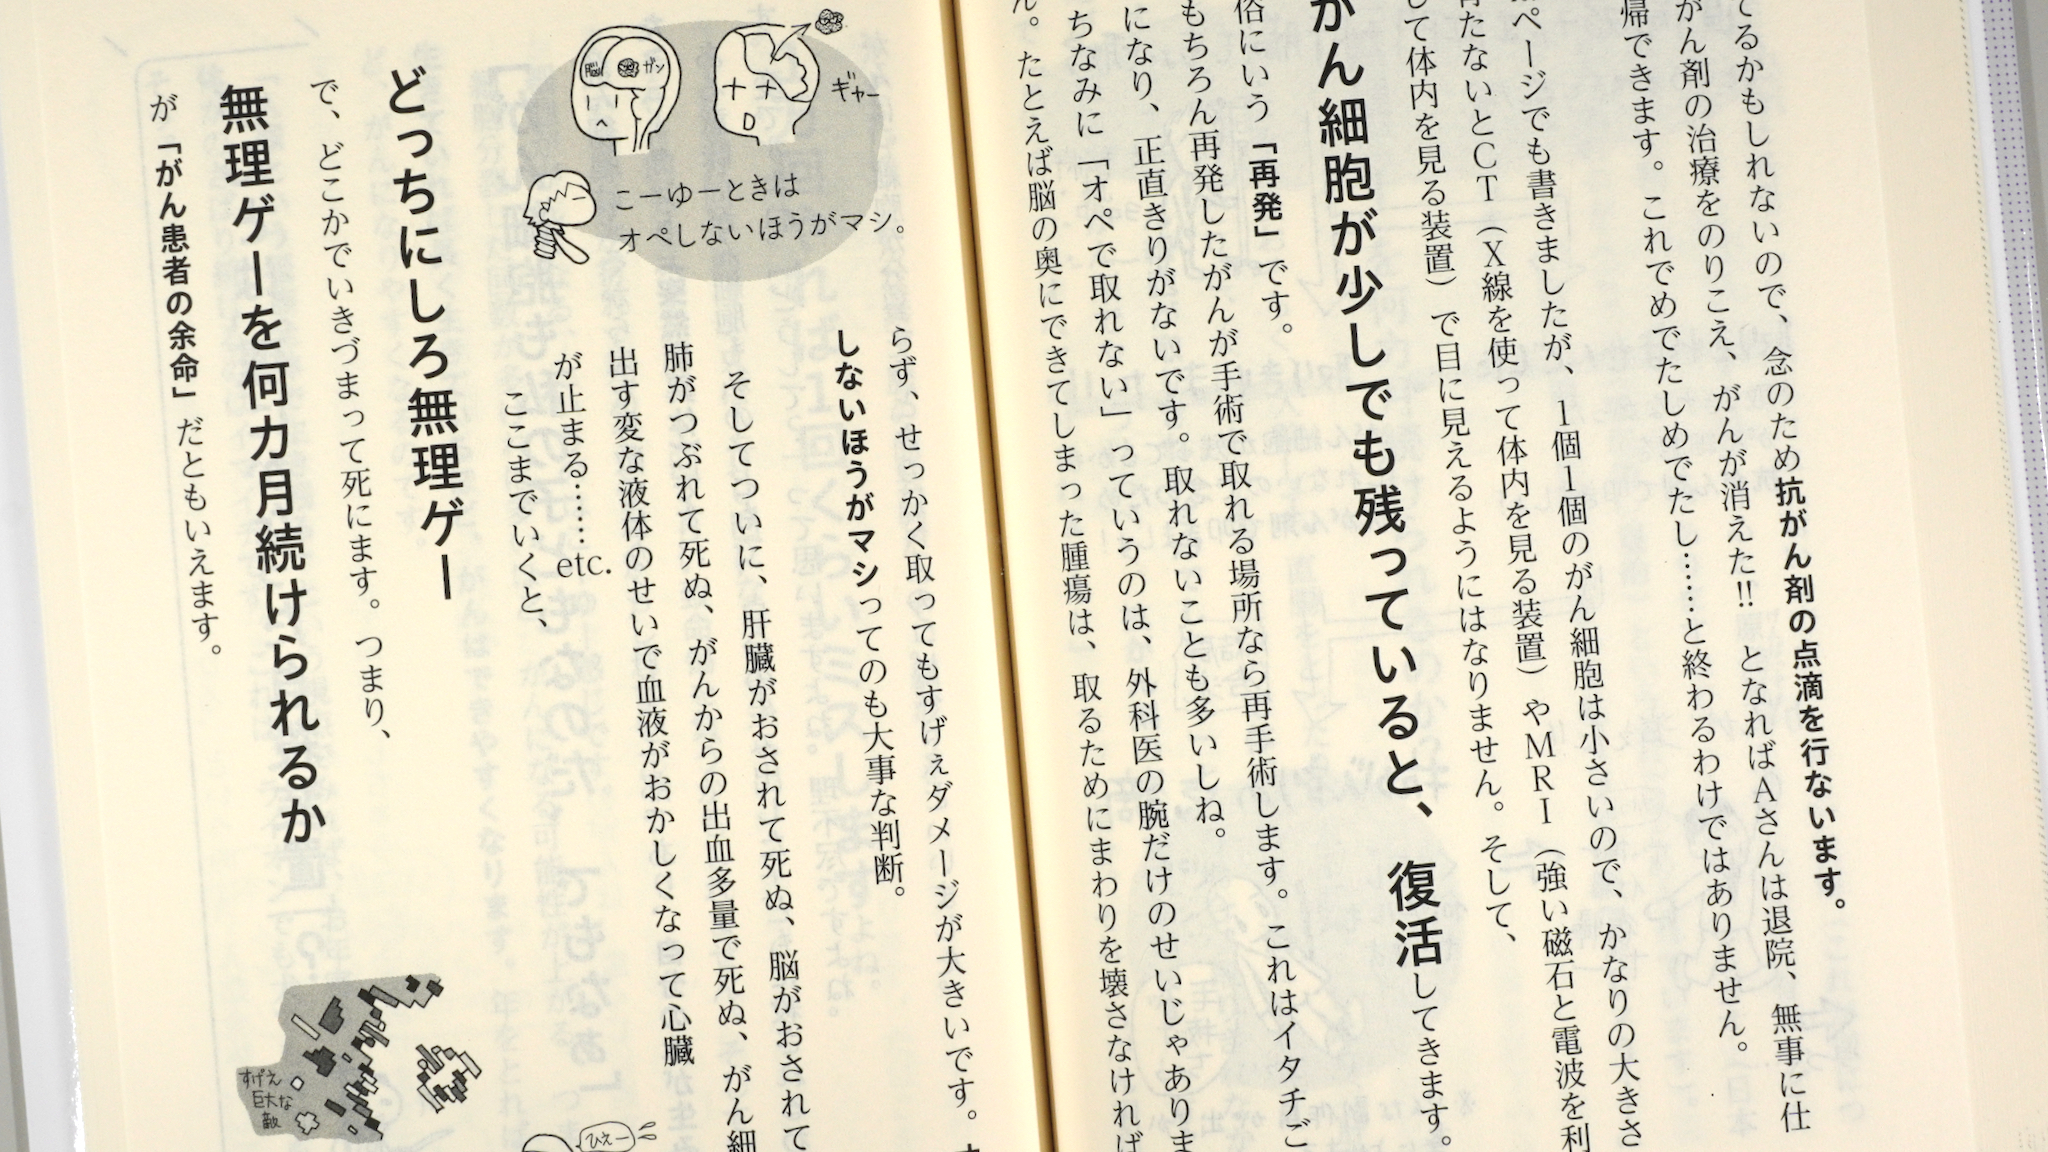 てるかもしれないので、念のため抗がん剤の点滴を行ないます。
がん剤の治療をのりこえ、がんが消えた!! となればAさんは退院、無事に仕
帰できます。これでめでたしめでたし……と終わるわけではありません。
ページでも書きましたが、1個1個のがん細胞は小さいので、かなりの大きさ
たないとCT（X線を使って体内を見る装置）やMRI（強い磁石と電波を利
して体内を見る装置）で目に見えるようにはなりません。そして、
がん細胞が少しでも残っていると、復活してきます。
俗にいう「再発」です。
もちろん再発したがんが手術で取れる場所なら再手術します。これはイタチご
になり、正直きりがないです。取れないことも多いしね。
ちなみに「オペで取れない」っていうのは、外科医の腕だけのせいじゃありま
ん。たとえば脳の奥にできてしまった腫瘍は、取るためにまわりを壊さなければ
らず、せっかく取ってもすげぇダメージが大きいです。
しないほうがマシってのも大事な判断。
そしてついに、肝臓がおされて死ぬ、脳がおされて
肺がつぶれて死ぬ、がんからの出血多量で死ぬ、がん細
出す変な液体のせいで血液がおかしくなって心臓
が止まる……etc.
ここまでいくと、
ギャー
脳
ガン
こーゆーときは
オペしないほうがマシ。
どっちにしろ無理ゲー
で、どこかでいきづまって死にます。つまり、
無理ゲーを何カ月続けられるか
が「がん患者の余命」だともいえます。
すげえ
巨大な
敵
ひえー